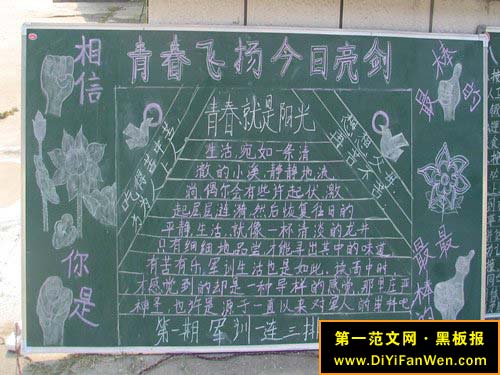 青春飞扬今日亮剑
相信
你是
最棒的
最最
最棒的
吃得苦中苦
方为人上人
青春就是阳光
生活,宛如一条清
澈的小溪,静静地流
淌,偶尔会有些许起伏,激
起层层涟漪,然后恢复往日的
平静。生活,就像一杯清淡的龙井
只有细细地品尝才能寻出其中的味道,
有苦有乐,军训生活也是如此,
才感觉到的却是一种异样的感觉,那种庄严
神圣,也许是源于一直以来对军人的
第一期军训一连三排
第一范文网·黑板报
www.DiYiFanWen.com